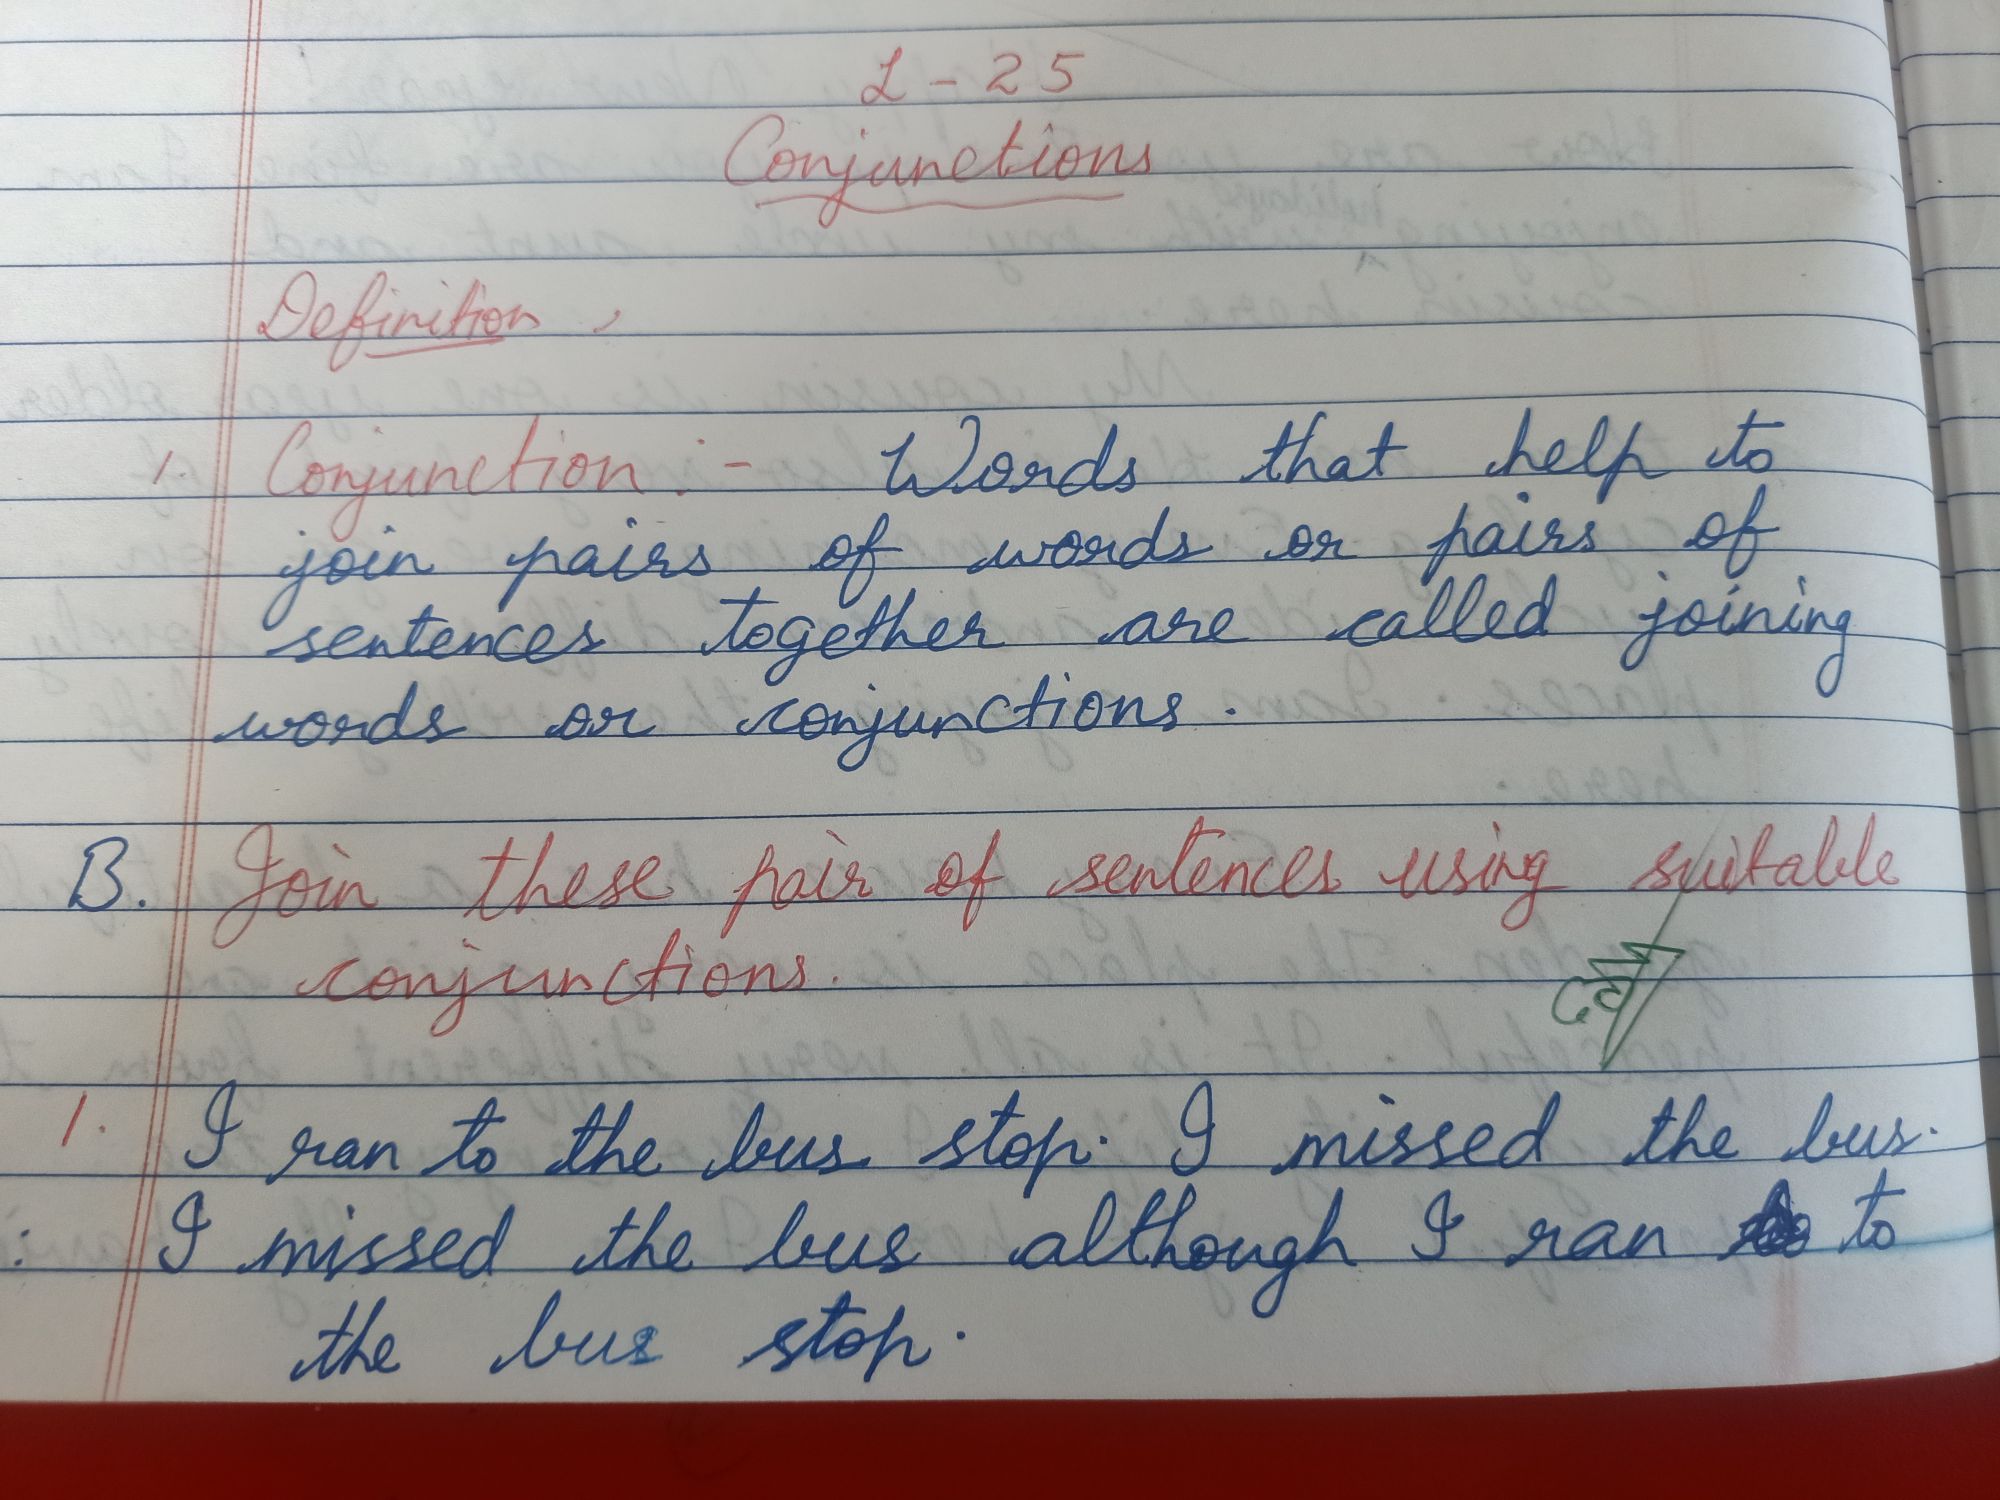 L-25
Conjunctions
Definition,
1. Conjunction:- Words that help to
join pairs of words or pairs of
sentences together are called joining
words or conjunctions.
B. Join these pair of sentences using suitable
conjunctions.
1. I ran to the bus stop. I missed the bus.
: I missed the bus although I ran to
the bus stop.